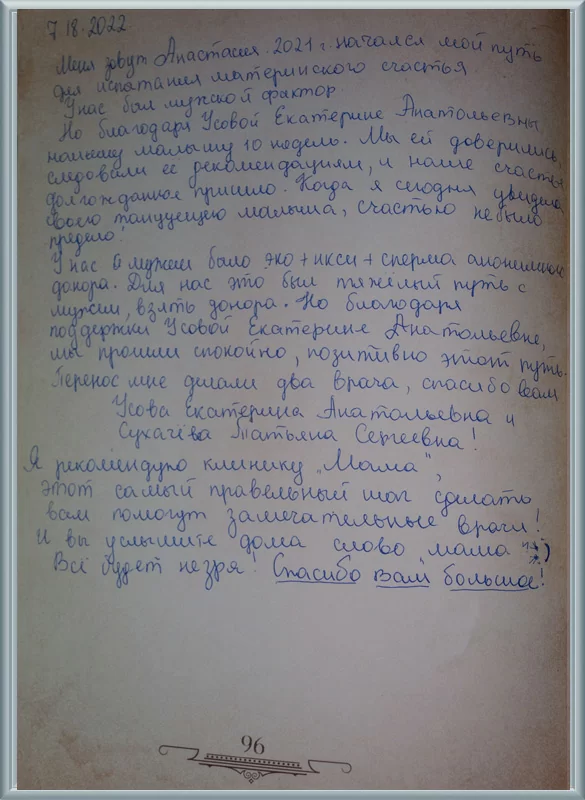 7 18.2022
Меня зовут Анастасия. 2021 г. начался мой путь
для испатания материнского счастья
У нас был мужской фактор
Но благодаря Усовой Екатерине Анатольевны,
нашему малышу 10 недель. Мы ей доверились,
следовали её рекомендациям, и наше счастье
долгожданное пришло. Когда я сегодня увидела
своего танцующею малыша, счастью небыло
предела!
У нас с мужем было эко + икси + сперма анонимного
донора. Для нас это был тяжёлый путь с
мужем, взять донора. Но благодаря
поддержки Усовой Екатерине Анатольевне,
мы прошли спокойно, позитивно этот путь.
Перенос мне делали два врача, спасибо вам
Усова Екатерина Анатольевна и
Сухачёва Татьяна Сергеевна!
Я рекомендую клинику „Мама",
этот самый правельный шаг сделать
вам помогут замечательные врачи!
И вы услышите дома слово "мама" :)
Всё будет незря! Спасибо вам большое!
96